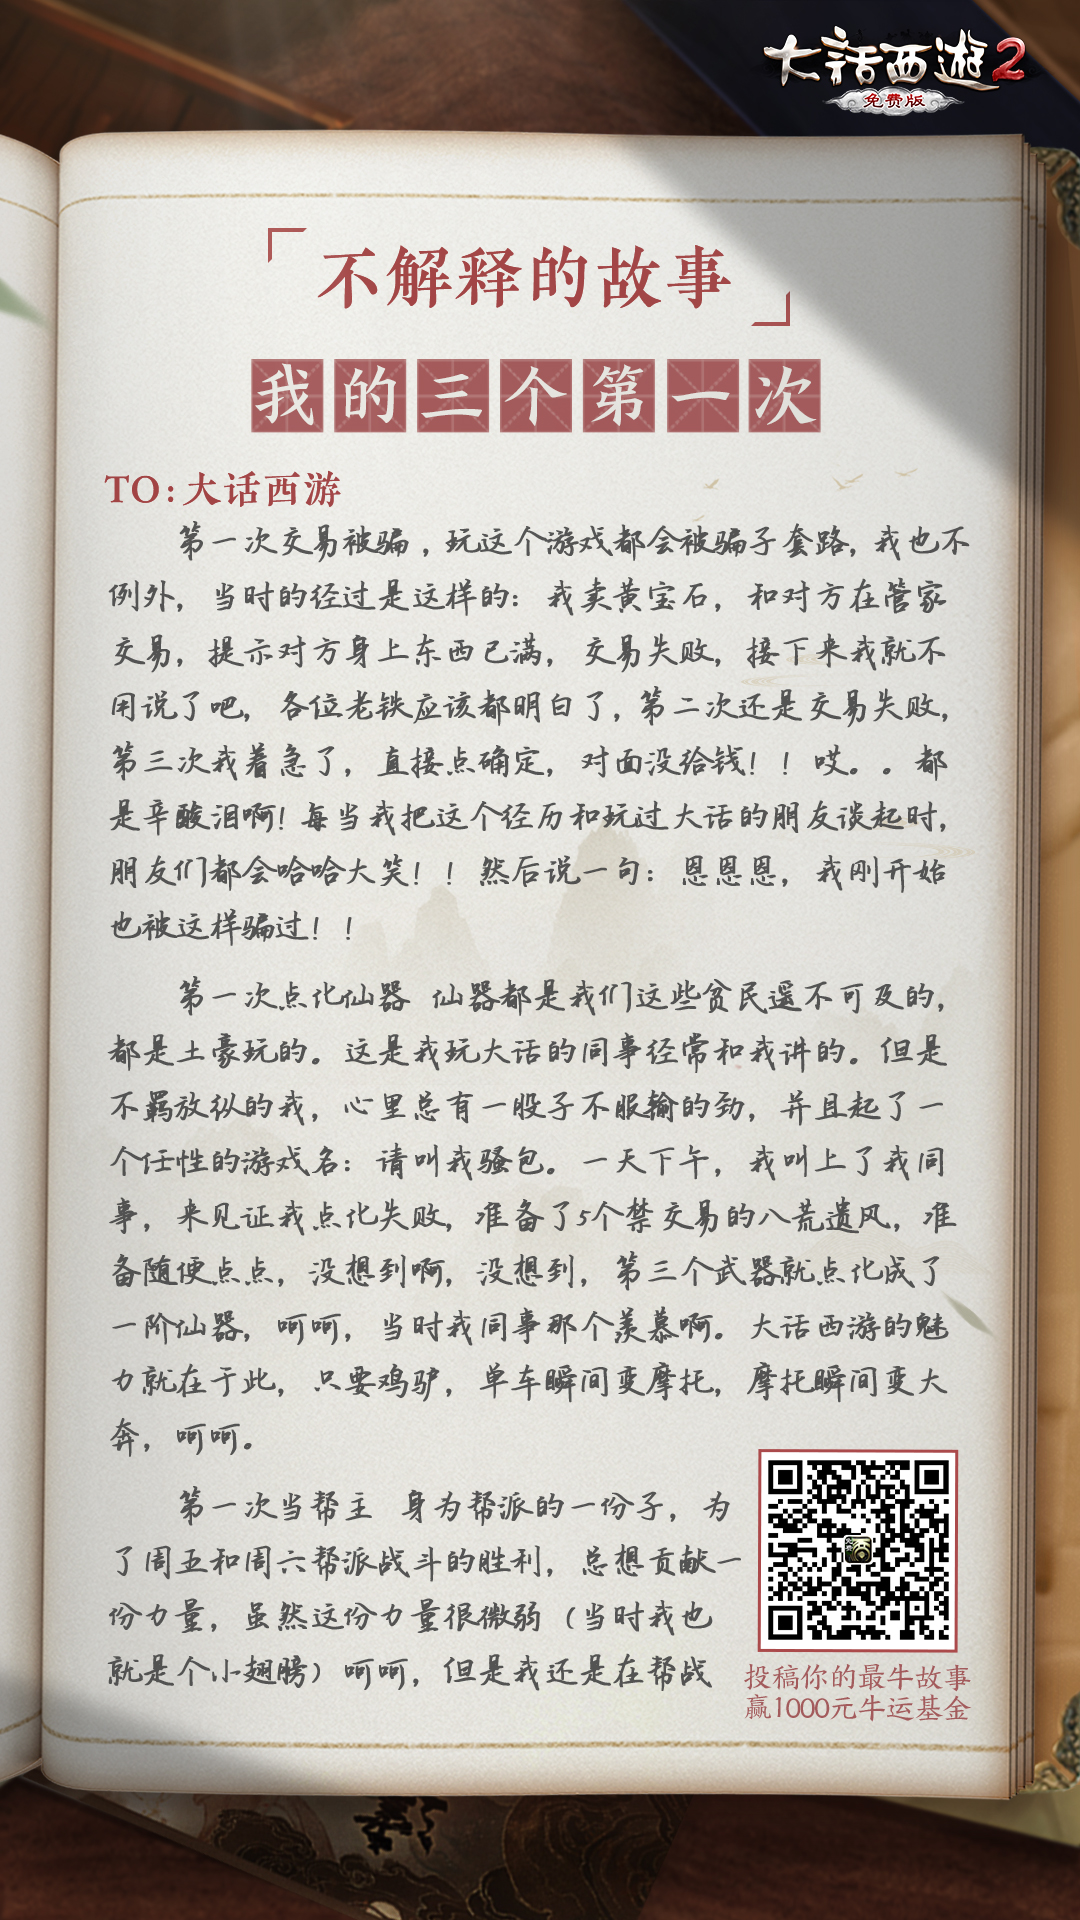 大话西遊2
免费版
不解释的故事
我的三个第一次
TO:大话西游
第一次交易被骗，玩这个游戏都会被骗子套路，我也不
例外，当时的经过是这样的：我卖黄宝石，和对方在管家
交易，提示对方身上东西已满，交易失败，接下来我就不
用说了吧，各位老铁应该都明白了，第二次还是交易失败，
第三次我着急了，直接点确定，对面没给钱！！哎。。都
是辛酸泪啊！每当我把这个经历和玩过大话的朋友谈起时，
朋友们都会哈哈大笑！！然后说一句：恩恩恩，我刚开始
也被这样骗过！！
第一次点化仙器 仙器都是我们这些贫民遥不可及的，
都是土豪玩的。这是我玩大话的同事经常和我讲的。但是
不羁放纵的我，心里总有一股子不服输的劲，并且起了一
个任性的游戏名：请叫我骚包。一天下午，我叫上了我同
事，来见证我点化失败，准备了5个禁交易的八荒遗风，准
备随便点点，没想到啊，没想到，第三个武器就点化成了
一阶仙器，呵呵，当时我同事那个羡慕啊。大话西游的魅
力就在于此，只要鸡驴，单车瞬间变摩托，摩托瞬间变大
奔，呵呵。
第一次当帮主 身为帮派的一份子，为
了周五和周六帮派战斗的胜利，总想贡献一
份力量，虽然这份力量很微弱（当时我也
就是个小翅膀）呵呵，但是我还是在帮战
投稿你的最牛故事
赢1000元牛运基金